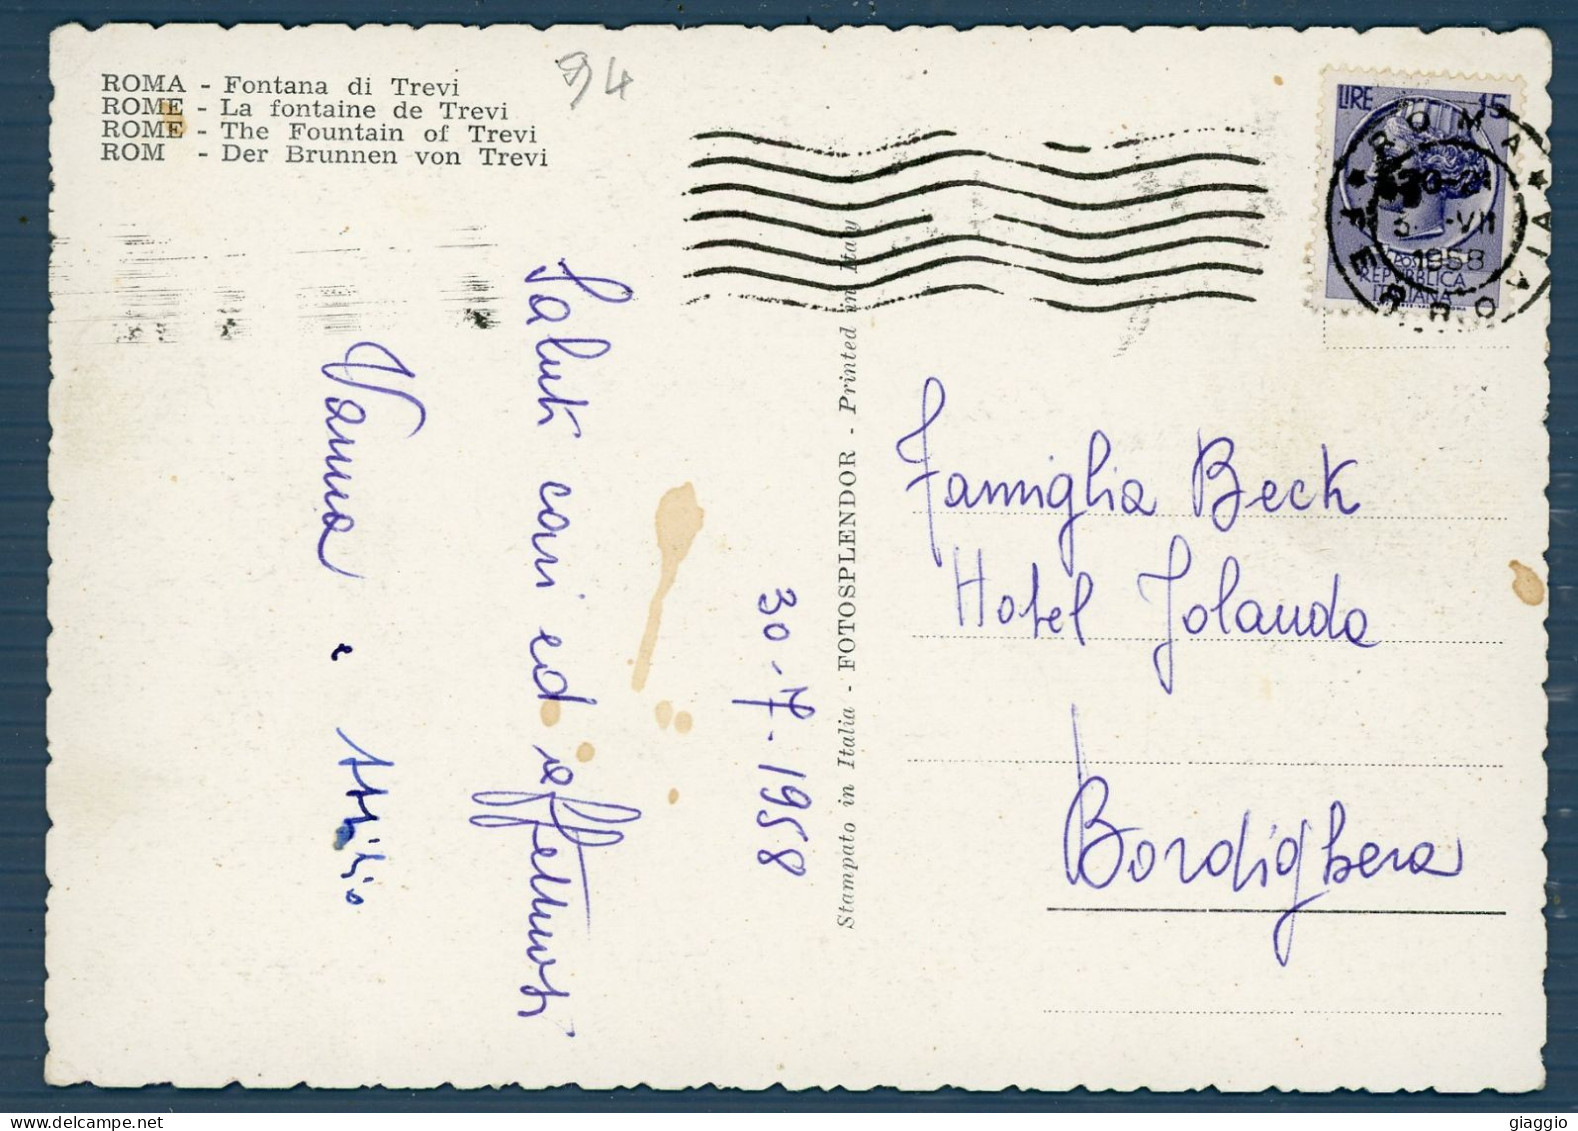 ROMA - Fontana di Trevi
ROME - La fontaine de Trevi
ROME - The Fountain of Trevi
ROM - Der Brunnen von Trevi
94
LIRE 15
POSTE
REPUBBLICA
ITALIANA
ROMA FERROVIA
20-21
-VII
1958
30-7-1958
Saluti cari ed affettuosi
Vanna e Attilio
Stampato in Italia - FOTOSPLENDOR - Printed in Italy
Famiglia Beck
Hotel Jolanda
Bordighera
giaggio